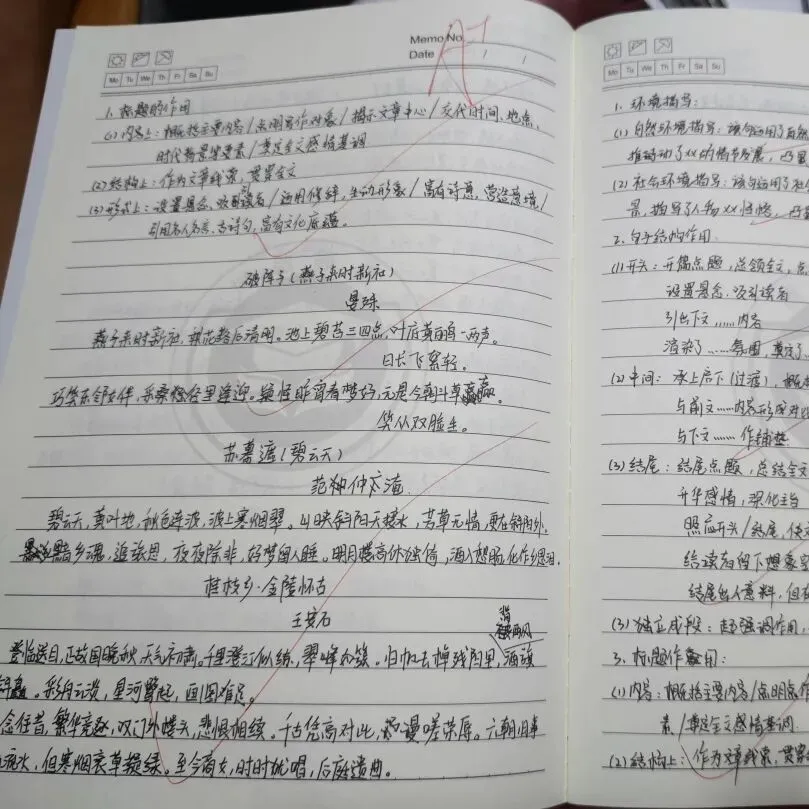 Memo No.
Date / /
Mo Tu We Th Fr Sa Su
A+
1. 标题的作用
(1) 内容上：概括主要内容/点明写作对象/揭示文章中心/交代时间、地点、
时代背景等要素/奠定全文感情基调
(2) 结构上：作为文章线索，贯串全文
(3) 形式上：设置悬念，吸引读者/运用修辞，生动形象/富有诗意，营造意境/
引用名人名言、古诗句，富有文化底蕴。
破阵子（燕子来时新社）
晏殊
燕子来时新社，梨花落后清明。池上碧苔三四点，叶底黄鹂一两声。
日长飞絮轻。
巧笑东邻女伴，采桑径里逢迎。疑怪昨宵春梦好，元是今朝斗草赢。
笑从双脸生。
苏幕遮（碧云天）
范仲淹
碧云天，黄叶地，秋色连波，波上寒烟翠。山映斜阳天接水，芳草无情，更在斜阳外。
黯乡魂，追旅思，夜夜除非，好梦留人睡。明月楼高休独倚，酒入愁肠，化作相思泪。
桂枝香·金陵怀古
王安石
背西风
登临送目，正故国晚秋，天气初肃。千里澄江似练，翠峰如簇。归帆去棹残阳里，酒旗
斜矗。彩舟云淡，星河鹭起，画图难足。
念往昔，繁华竞逐，叹门外楼头，悲恨相续。千古凭高对此，漫嗟荣辱。六朝旧事
流水，但寒烟衰草凝绿。至今商女，时时犹唱，后庭遗曲。
Mo Tu We Th Fr Sa Su
1. 环境描写：
(1) 自然环境描写：该句运用了自然
推动了xx的情节发展，
(2) 社会环境描写：该句运用了社
景，描写了人物xx性格，
2. 句子结构作用
(1) 开头：开篇点题，总领全文，点
设置悬念，吸引读者
引出下文……内容
渲染了……氛围，奠定了
(2) 中间：承上启下（过渡），概
与前文……内容形成对比
与下文……作铺垫
(3) 结尾：结尾点题，总结全文
升华感情，深化主旨
照应开头/结尾，使文
给读者留下想象空
结尾出人意料，但在
(3) 独立成段：起强调作用，
3. 标题作用：
(1) 内容：概括主要内容/点明点作
素/奠定全文感情基调
(2) 结构上：作为文章线索，贯串